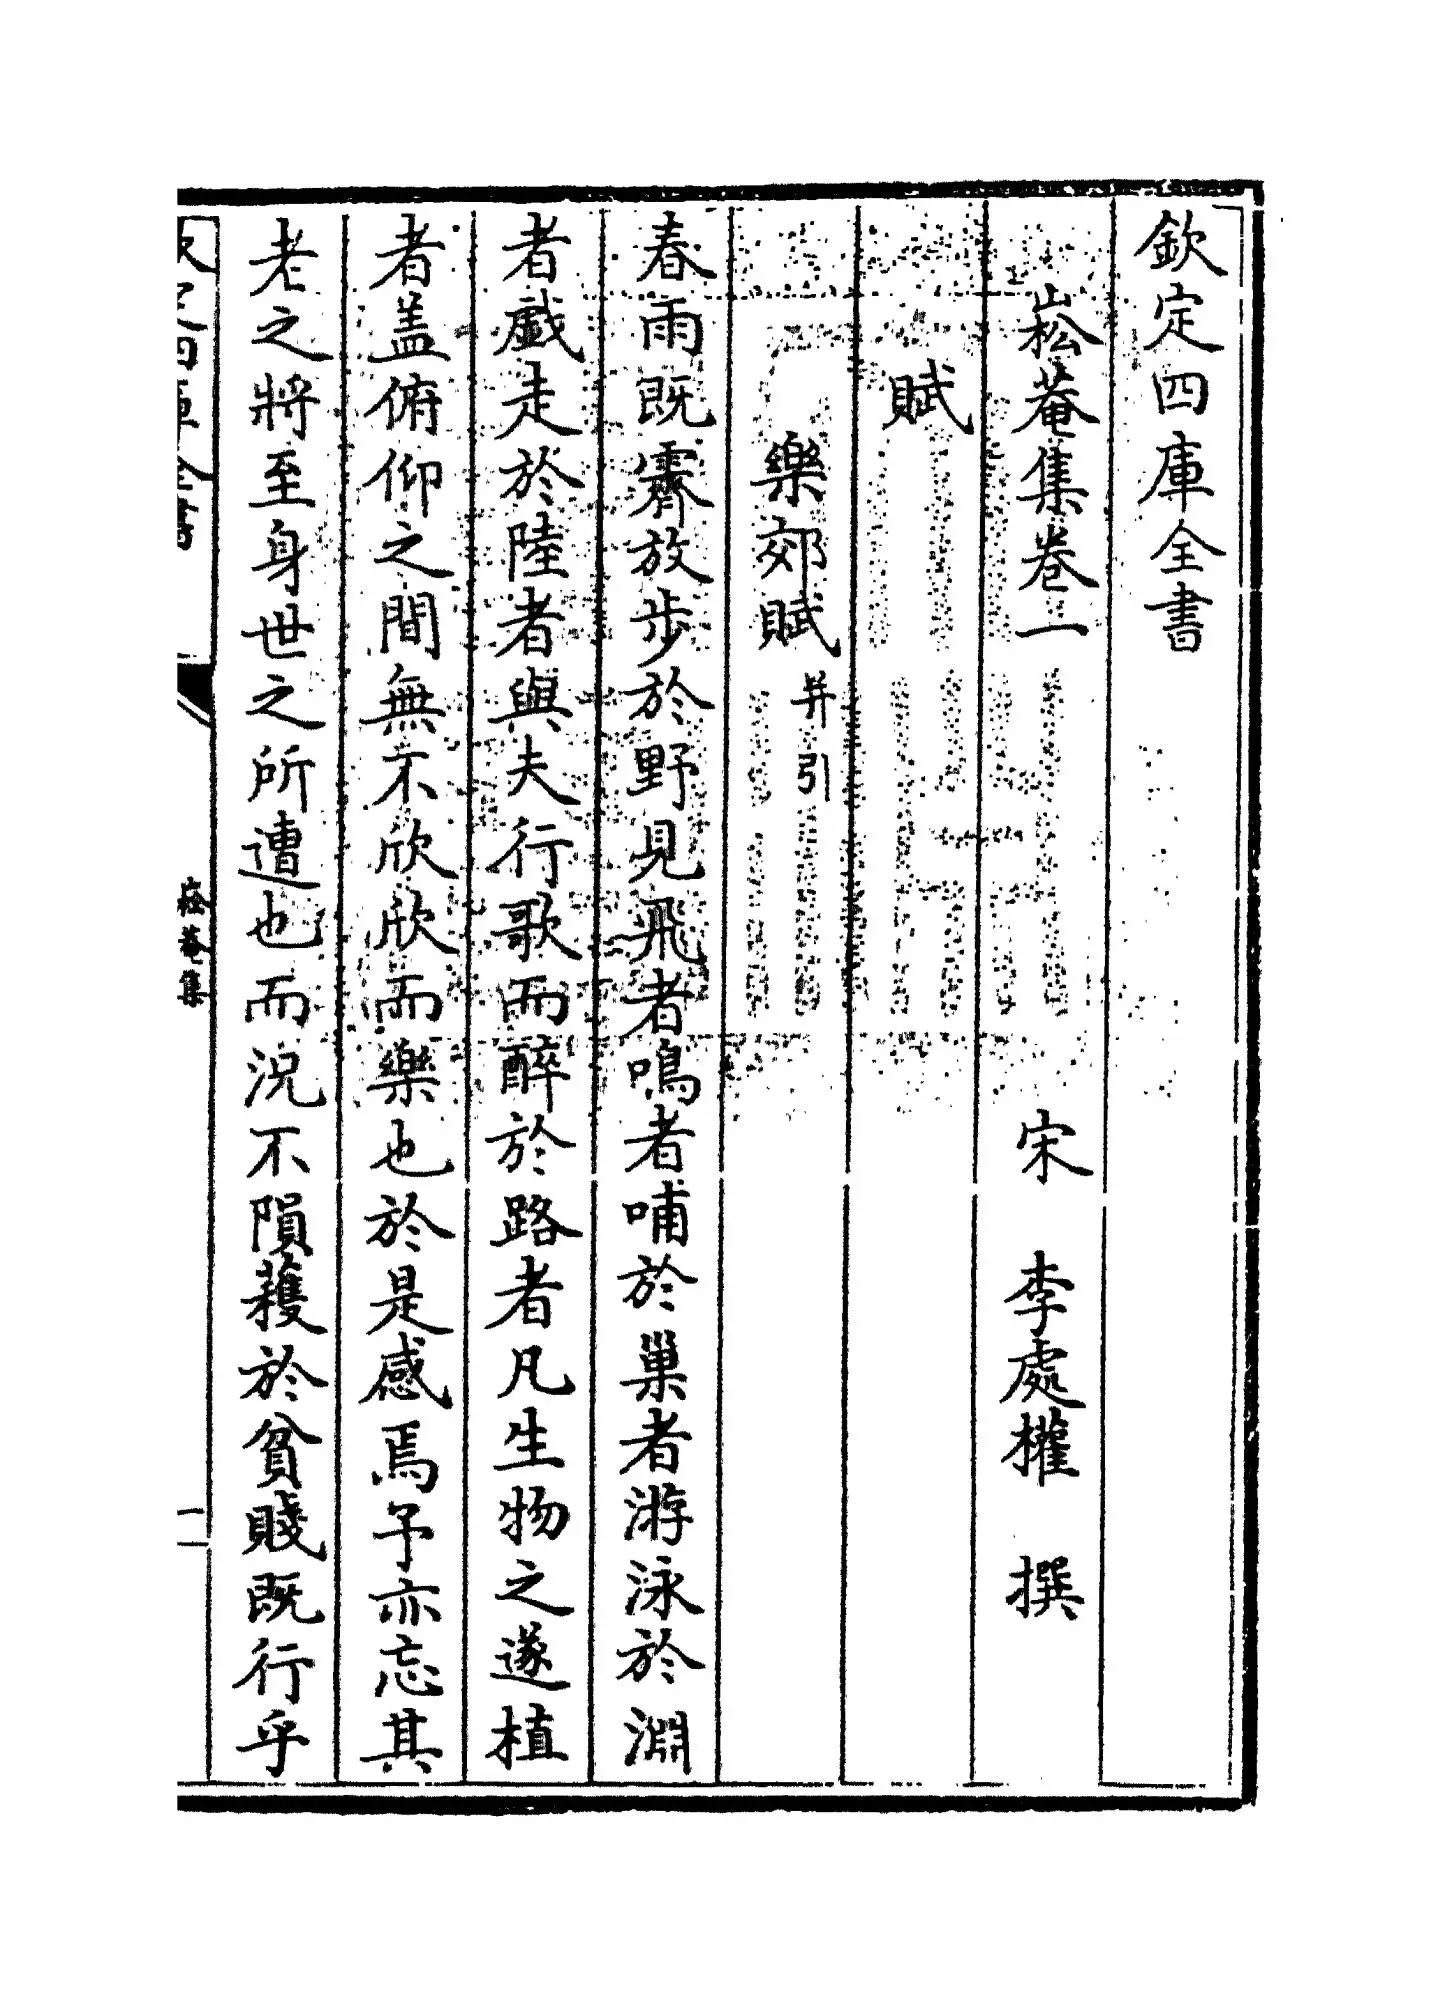 欽定四庫全書
崧菴集卷一
宋 李處權 撰
賦
樂郊賦 并引
春雨既霽放步於野見飛者鳴者哺於巢者游泳於淵
者戲走於陸者與夫行歌而醉於路者凡生物之遂植
者盖俯仰之間無不欣欣而樂也於是感焉予亦忘其
老之將至身世之所遭也而況不隕穫於貧賤既行乎
欽定四庫全書
崧菴集
一